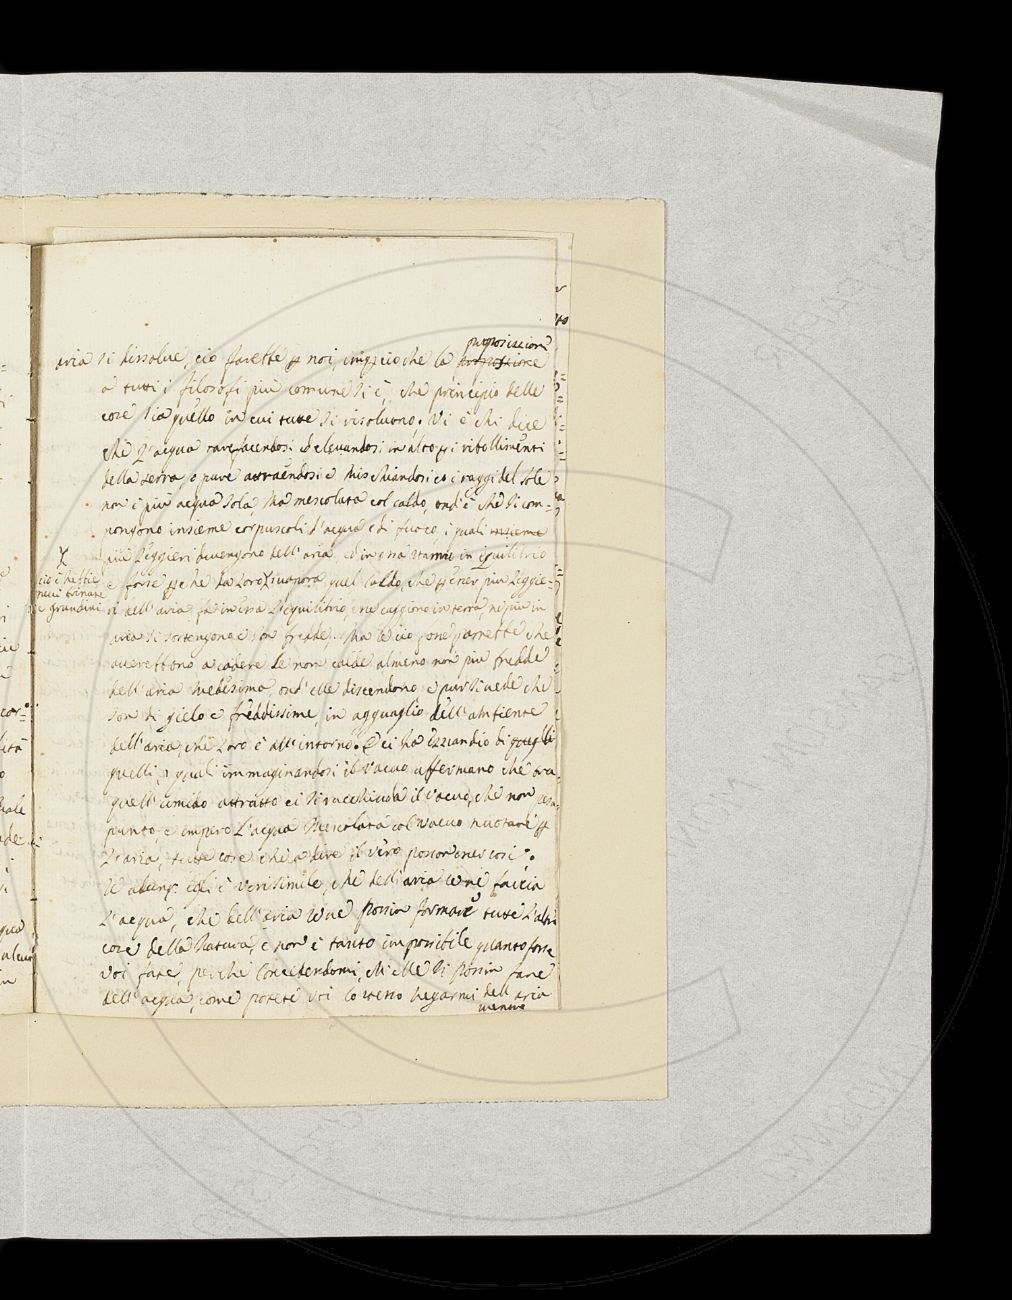 proposizione
aria si dissolve, ciò farette per noi, imperciochè la proposizione
a tutti i filosofi più comune si è, che principio delle
cose sia quello in cui tutte si risoluono. Vi è chi dice
che l'acqua rarefacendosi ed eleuandosi in alto per i ribollimenti
della terra, o pure attraendosi e mischiandosi co i raggi del sole
non è più acqua sola, ma mescolata col caldo, ond'è che si com-
pongono insieme corpuscoli d'acqua e di fuoco, i quali insieme
più leggieri diuengono dell'aria, ed in essa stanno in equilibrio
e forse perchè da loro suapora quel caldo, che per esser più leggie-
ri dell'aria, fà in essa l'equilibrio, ne caggiono in terra, ne più in
aria si sostengono e son fredde. Ma se ciò fosse parrebbe che
auerebbono a cadere se non calde almeno non più fredde
dell'aria medesima, ond'elle discendono e pur si uede che
son di gielo e freddissime, in agguaglio dell'ambiente
dell'aria, che loro è all'intorno. E ci ha eziandio di quegli
quelli, i quali immaginandosi il vacuo affermano che ora
quell'umido attratto ei si racchiuda il vacuo, che non pesa
punto, e impero l'acqua mescolata col vacuo nuotare per
l'aria, tutte cose che a dire il vero posson esser così.
Egli è verisimile, che dell'aria se ne faccia
l'acqua, che dell'aria se ne possin formare tutte l'altre
cose della Natura, e non è tanto impossibile quanto forse
voi fate, perchè concedendomi, ch'elle si possin fare
dell'acqua, come potete voi lo stesso negarmi dell'aria
mentre
X
e grandini